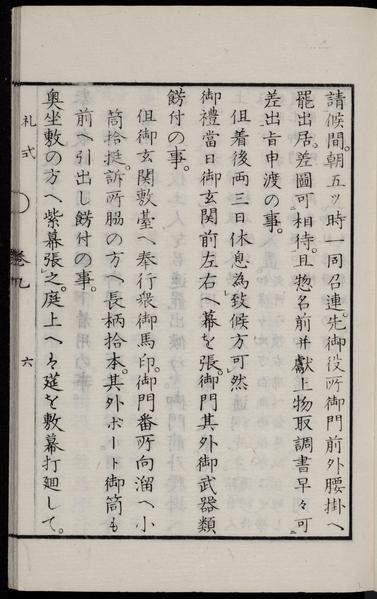 請候間。朝五ッ時一同召連。先御役所御門前外腰掛へ
罷出居。差圖可相待。且惣名前并獻上物取調書早々可
差出旨申渡の事。
但着後両三日休息為致候方可然
御禮當日御玄関前左右へ幕を張。御門其外御武器類
餝付の事。
但御玄関敷臺へ奉行衆御馬印。御門番所向溜へ小
筒拾挺。訴所脇の方へ長柄拾本。其外ボート御筒も
前へ引出し餝付の事。
奥坐敷の方へ紫幕張之。庭上へハ莚を敷幕打廻して。
札式
巻九
六